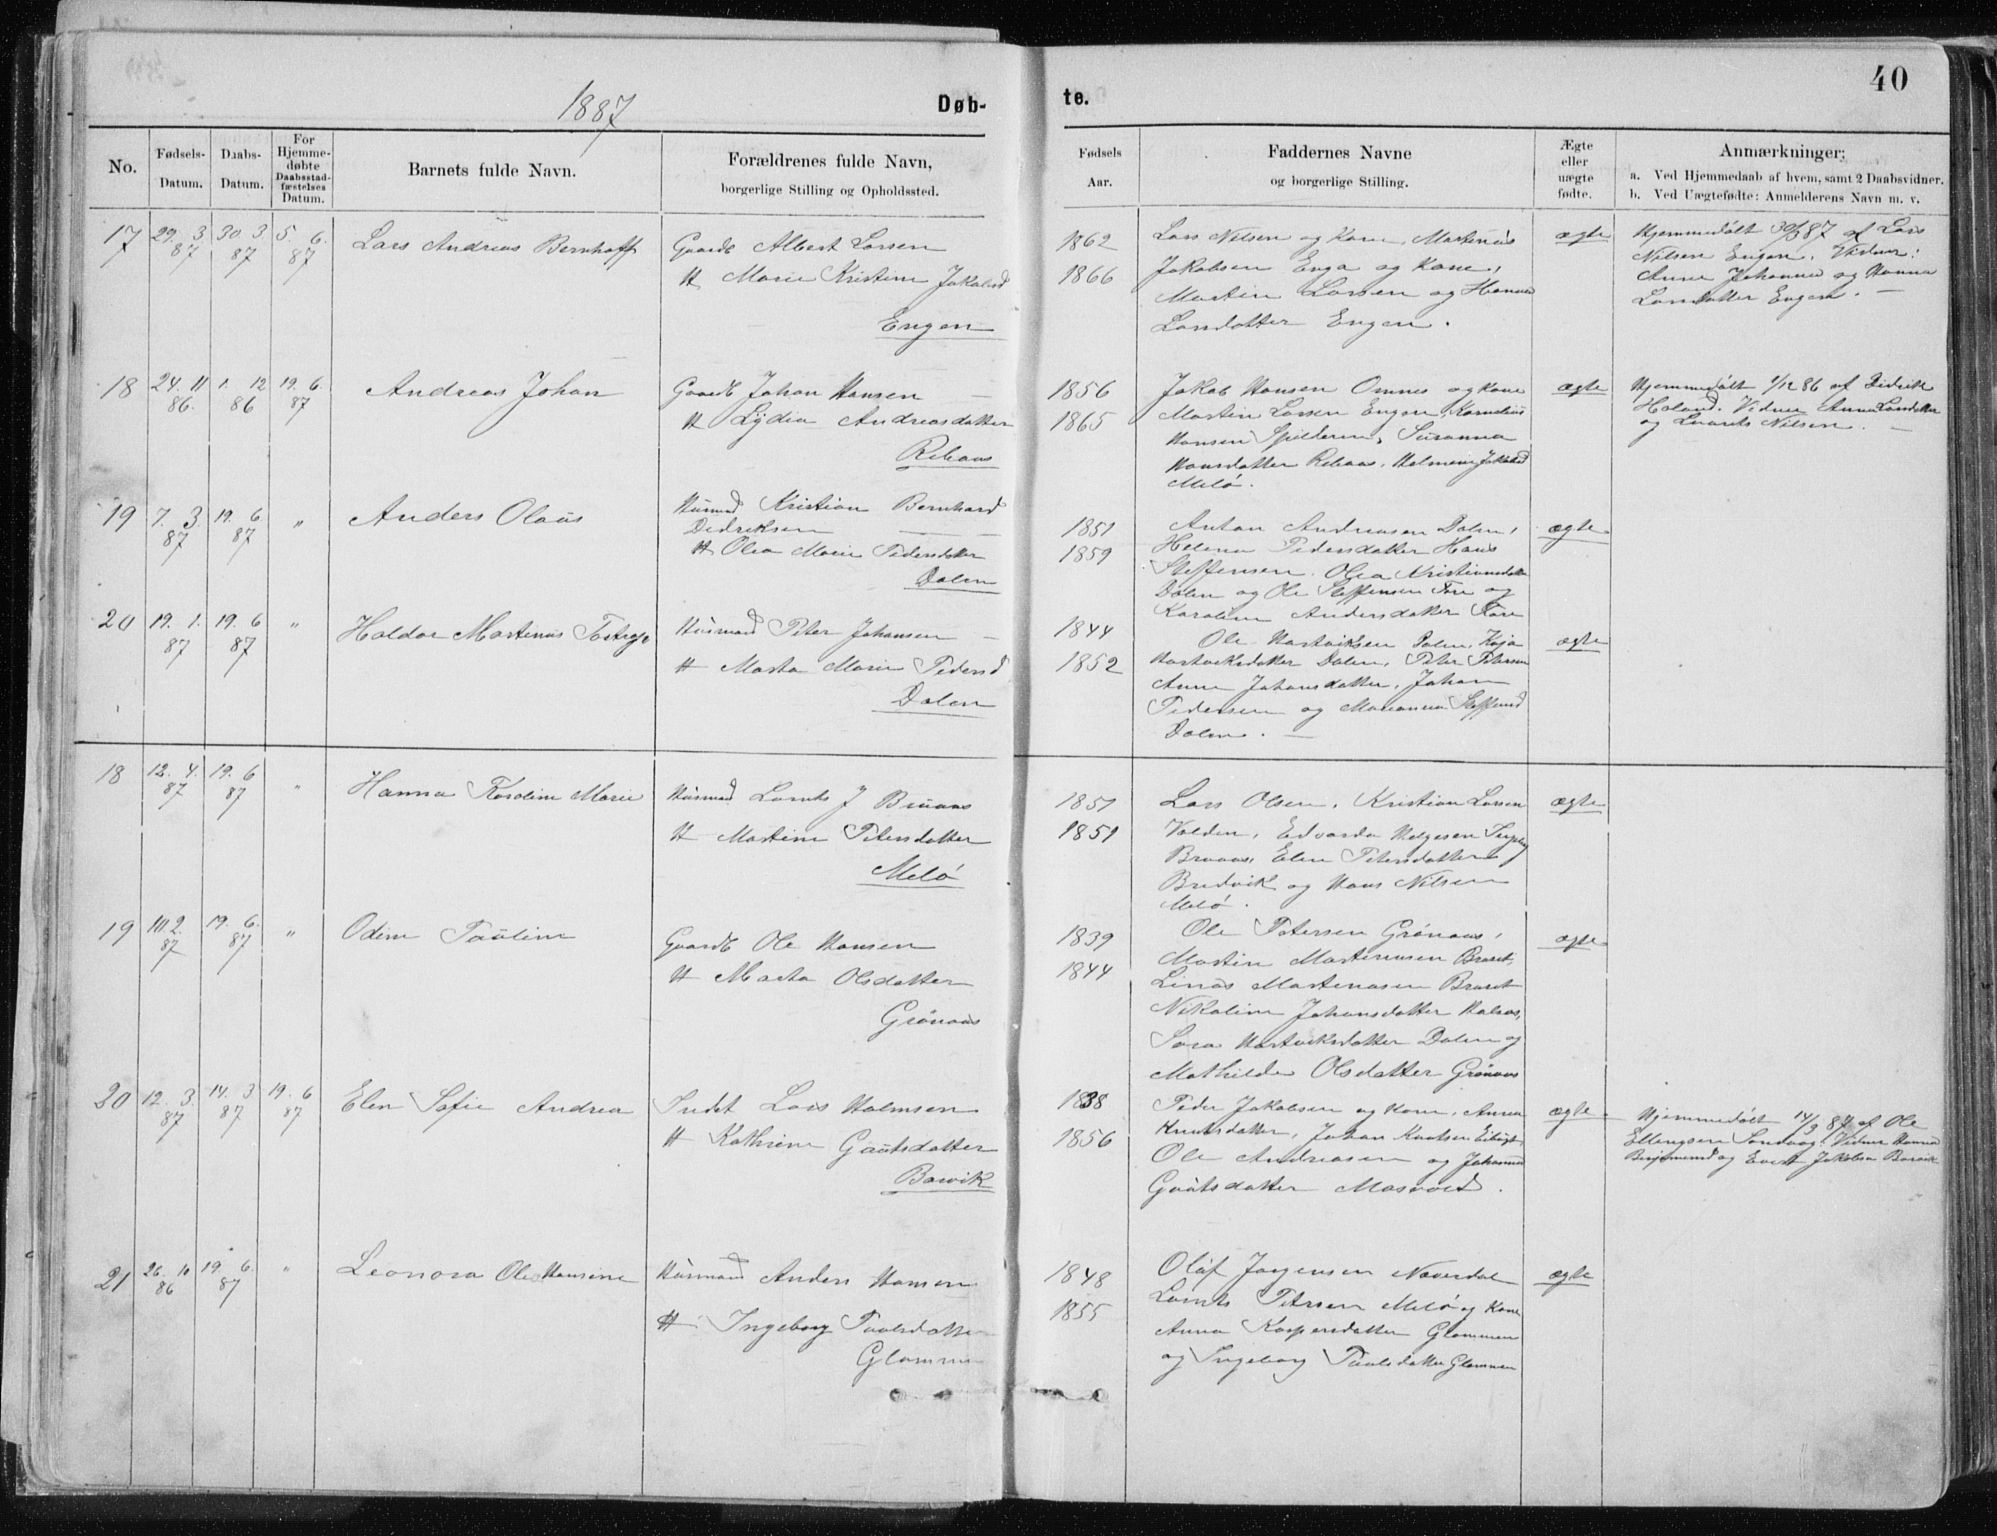 1887
Døb-
te.
40
No.
Fødsels-
Datum.
Daabs-
Datum.
For
Hjemme-
døbte
Daabsstad-
fæstelses
Datum.
Barnets fulde Navn.
Forældrenes fulde Navn,
borgerlige Stilling og Opholdssted.
Fødsels
Aar.
Faddernes Navne
og borgerlige Stilling.
Ægte
eller
uægte
fødte.
Anmærkninger:
a. Ved Hjemmedaab af hvem, samt 2 Daabsvidner.
b. Ved Uægtefødte: Anmelderens Navn m. v.
17
29. 3
87
30. 3
87
5. 6.
87
Lars Andreas Bernhoff
Gaardb Albert Larsen
H Marie Kristine Jakobsd
Engen
1862
1866
Lars Nilsen og Kone, Martenus
Jakobsen Enga og Kone,
Martin Larsen og Hanna
Larsdatter Engen.
ægte
Hjemmedøbt 30/3 87 af Lars
Nilsen Engen. Vidner:
Anne Johanna og Hanna
Larsdatter Engen. —
18
24. 11
86.
1. 12
86
19. 6
87
Andreas Johan
Gaardb Johan Hansen —
H Lydia Andreasdatter
Rebaas
1856
1865
Jakob Hansen Omnes og Kone
Martin Larsen Engen, Kornelius
Hansen Spilderen, Susanna
Hansdatter Rebaas, Jakobsd
Melö.
ægte
Hjemmedøbt 1/12 86 af Didrik
Holand. Vidner Anna Larsdatter
og Laurits Nilsen. —
19
7. 3.
87
19. 6
87
"
Anders Olaus
Husmd Kristian Bernhard
Didriksen
H Olea Marie Pedersdatter
Dalen
1851
1859
Anton Andreasen Dalen,
Helena Pedersdatter Hans
Steffensen, Olea Kristiansdatter
Dalen og Ole Steffensen Fore og
Karoline Andersdatter Fore
ægte
20
19. 1.
87
19. 6
87
"
Haldor Martenus Tostrop
Husmand Peter Johansen —
H Marta Marie Pedersd
Dalen
1844
1852
Ole Hartviksen Dalen, Kaja
Hartviksdatter Dalen, Peter Petersen
Anne Johansdatter, Johan
Pedersen og Marianna Steffensd
Dalen. —
ægte
18
12. 4.
87
19. 6
87
"
Hanna Karoline Marie
Husmand Lorents J Bruaas
H Martine Petersdatter
Melö
1851
1851
Lars Olsen, Kristian Larsen
Valden, Edvarda Helgesen
Bruaas, Elen Petersdatter
Bredvik og Hans Nilsen
Melö.
ægte
19
10. 2.
87
19. 6.
87
"
Odine Pauline
Gaardb Ole Hansen
H Marta Olsdatter
Grönaas
1839
1844
Ole Petersen Grönaas,
Martin Martenusen Braset,
Linas Martenusen Braset
Nikoline Johansdatter Halsos,
Sara Hartviksdatter Dalen og
Mathilde Olsdatter Grönaas
ægte
20
12. 3.
87
14. 3
87
19. 6
87
Elen Sofie Andrea
Indst Lars Holmsen
H Kathrine Gautsdatter
Barvik
1838
1856
Peder Jakobsen og Kone, Anna
Knutsdatter, Johan Knutsen
Ole Andreasen og Johanna
Gautsdatter Masvold.
ægte
Hjemmedøbt 14/3 87 af Ole
Ellingsen Sandvaag. Vidner Hanna
Benjaminsd og Evert Jakobsen Barvik
21
26. 10
86
19. 6.
87
"
Leonora Ole Hansine
Husmand Anders Hansen
H. Ingeborg Paulsdatter
Glommen
1848
1855
Olaf Jörgensen Neverdal
Lorents Petersen Melö og Kone
Anna Kaspersdatter Glommen
og Ingeborg Paulsdatter Glommen
ægte